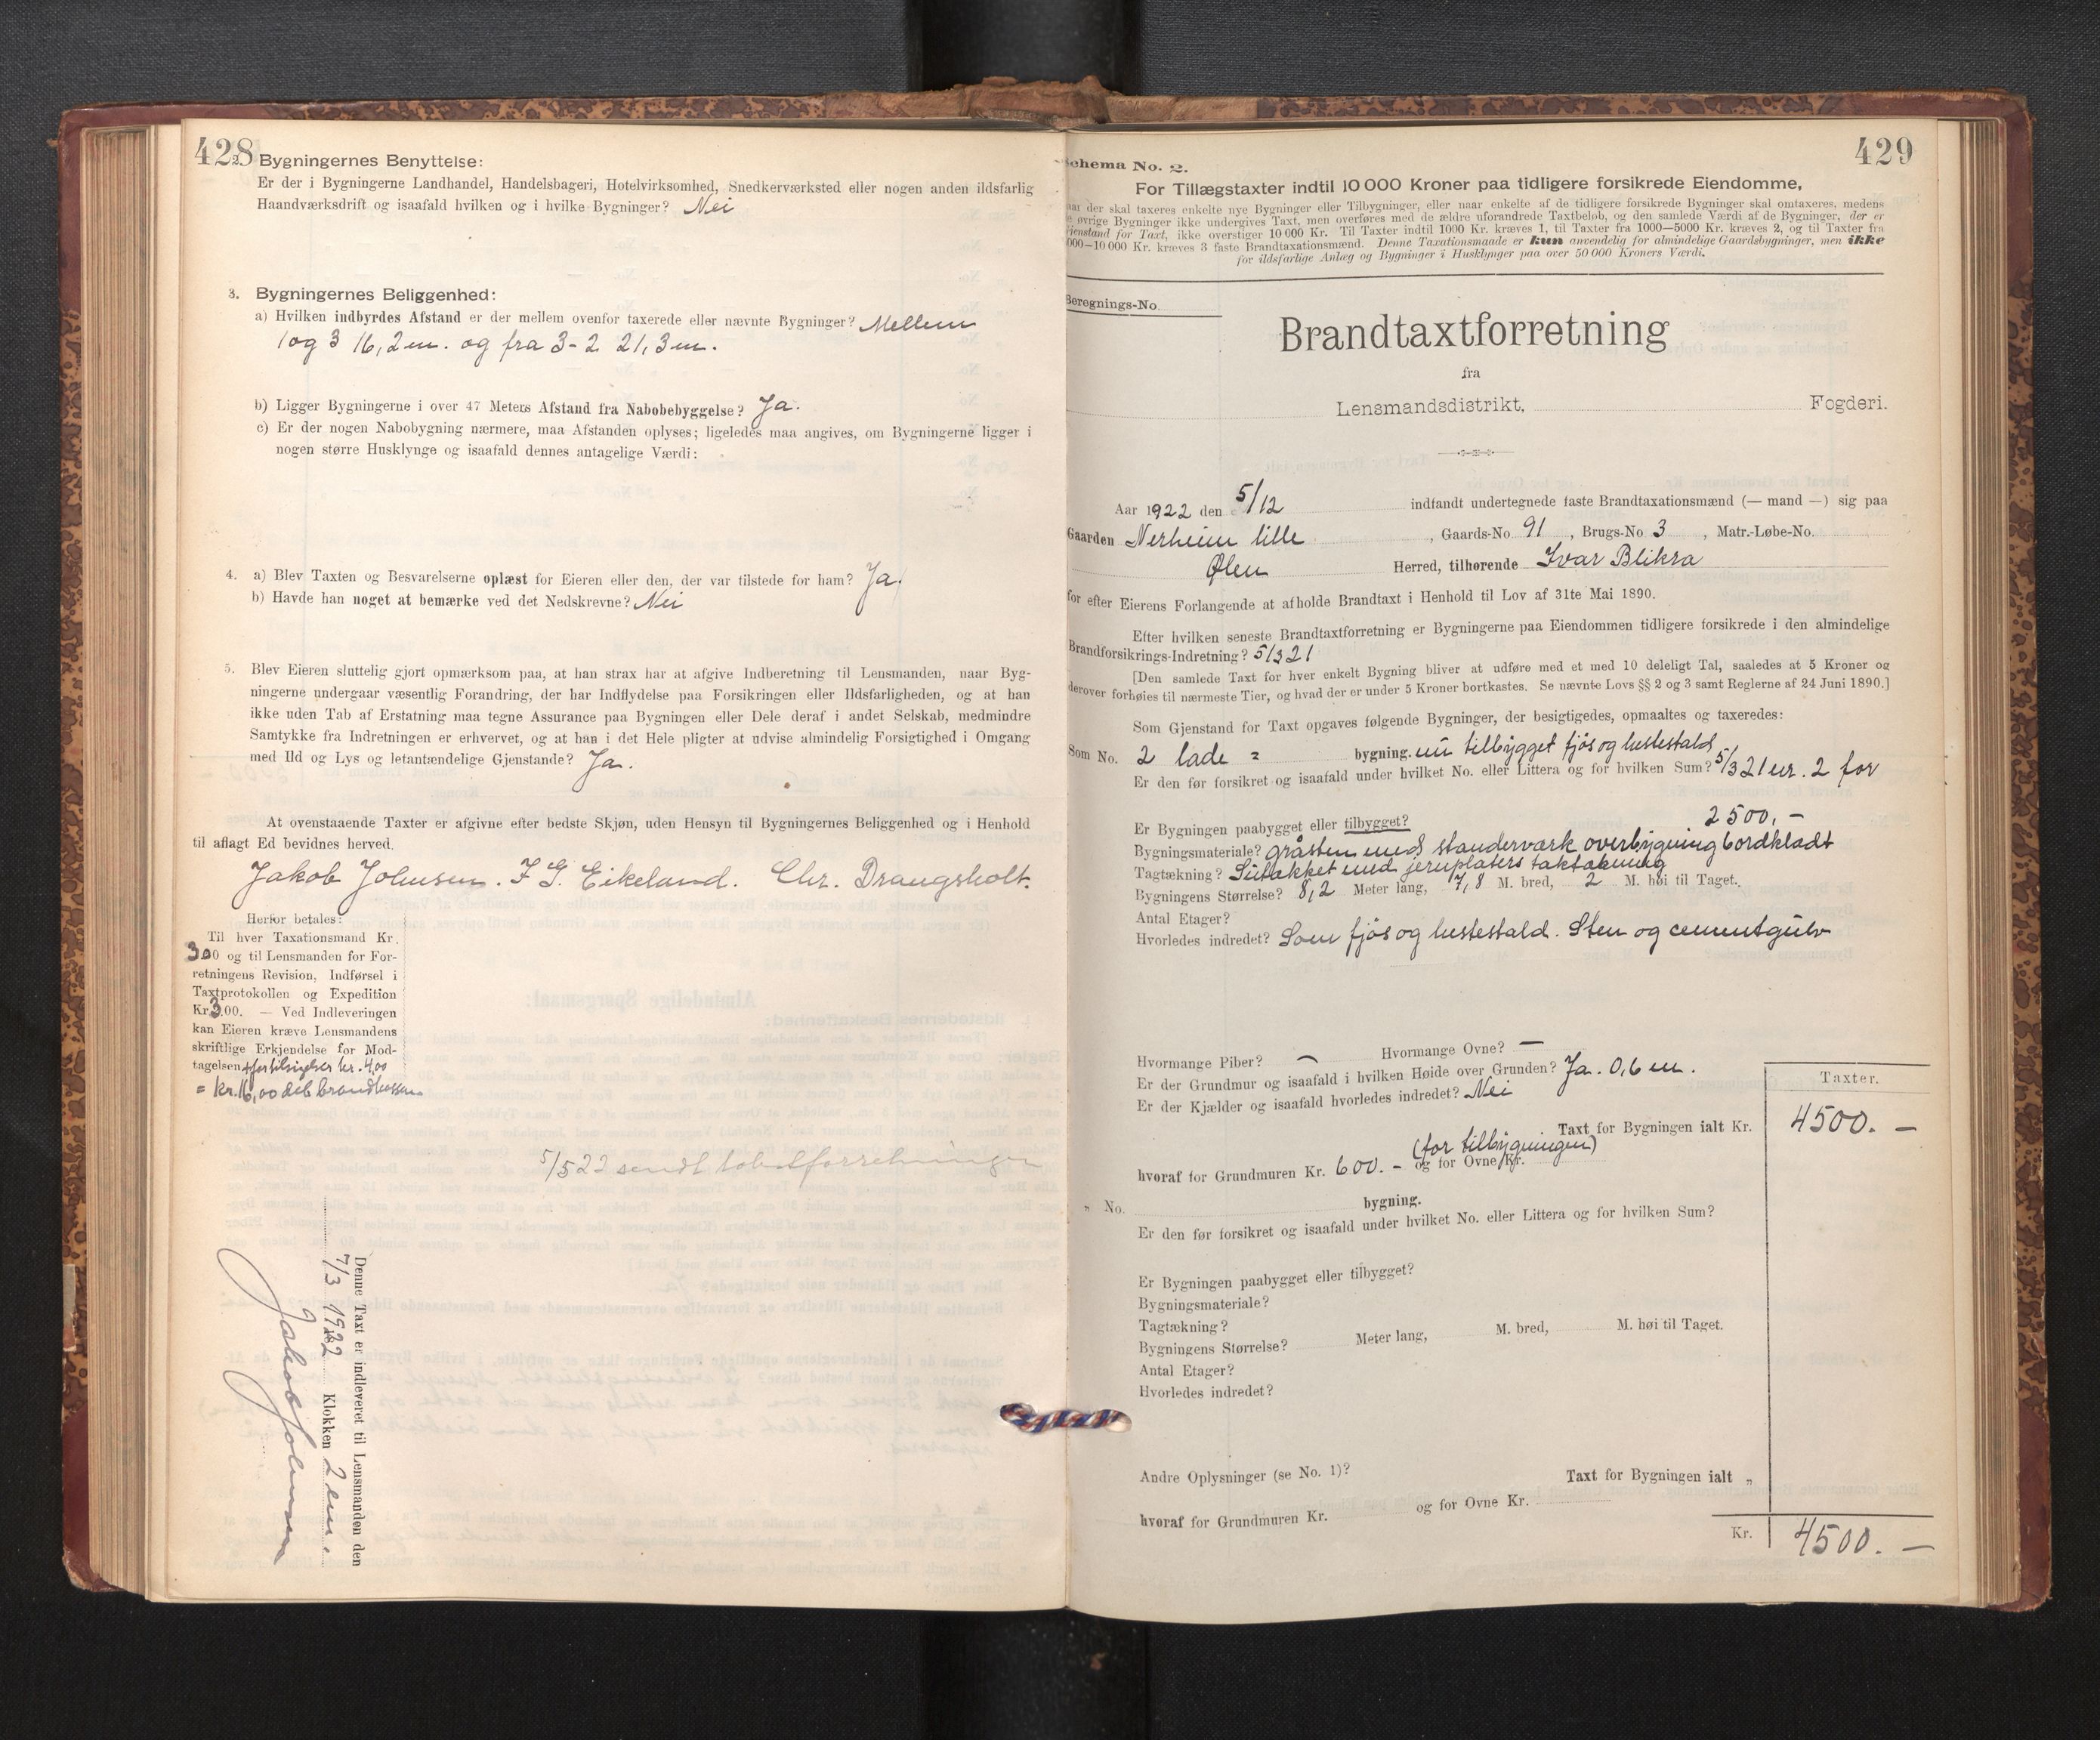 428
2. Bygningernes Benyttelse:
Er der i Bygningerne Landhandel, Handelsbageri, Hotelvirksomhed, Snedkerværksted eller nogen anden ildsfarlig
Haandværksdrift og isaafald hvilken og i hvilke Bygninger? Nei
3. Bygningernes Beliggenhed:
a) Hvilken indbyrdes Afstand er der mellem ovenfor taxerede eller nævnte Bygninger? Mellem
1 og 3 16,2 m. og fra 3-2 21,3 m.
b) Ligger Bygningerne i over 47 Meters Afstand fra Nabobebyggelse? Ja.
c) Er der nogen Nabobygning nærmere, maa Afstanden oplyses; ligeledes maa angives, om Bygningerne ligger i
nogen større Husklynge og isaafald dennes antagelige Værdi:
4. a) Blev Taxten og Besvarelserne oplæst for Eieren eller den, der var tilstede for ham? Ja.
b) Havde han noget at bemærke ved det Nedskrevne? Nei
5. Blev Eieren sluttelig gjort opmærksom paa, at han strax har at afgive Indberetning til Lensmanden, naar Byg-
ningerne undergaar væsentlig Forandring, der har Indflydelse paa Forsikringen eller Ildsfarligheden, og at han
ikke uden Tab af Erstatning maa tegne Assurance paa Bygningen eller Dele deraf i andet Selskab, medmindre
Samtykke fra Indretningen er erhvervet, og at han i det Hele pligter at udvise almindelig Forsigtighed i Omgang
med Ild og Lys og letantændelige Gjenstande? Ja.
At ovenstaaende Taxter er afgivne efter bedste Skjøn, uden Hensyn til Bygningernes Beliggenhed og i Henhold
til aflagt Ed bevidnes herved.
Jakob Johnsen. F G. Eikeland. Chr. Drangsholt.
Herfor betales:
Til hver Taxationsmand Kr.
3.00 og til Lensmanden for For-
retningens Revision, Indførsel i
Taxtprotokollen og Expedition
Kr. 3.00. — Ved Indleveringen
kan Eieren kræve Lensmandens
skriftlige Erkjendelse for Mod-
tagelsen + for tilsigelser kr. 4,00
= kr. 16,00 deb. brandkassen
5/5 22 sendt forretningen
Denne Taxt er indleveret til Lensmanden den
7/3 1922 Klokken 2 em.
Jakob Johnsen
429
Schema No. 2.
For Tillægstaxter indtil 10 000 Kroner paa tidligere forsikrede Eiendomme,
naar der skal taxeres enkelte nye Bygninger eller Tilbygninger, eller naar enkelte af de tidligere forsikrede Bygninger skal omtaxeres, medens
de øvrige Bygninger ikke undergives Taxt, men overføres med de ældre uforandrede Taxtbeløb, og den samlede Værdi af de Bygninger, der er
Gjenstand for Taxt, ikke overstiger 10 000 Kr. Til Taxter indtil 1000 Kr. kræves 1, til Taxter fra 1000—5000 Kr. kræves 2, og til Taxter fra
5000—10 000 Kr. kræves 3 faste Brandtaxationsmænd. Denne Taxationsmaade er kun anvendelig for almindelige Gaardsbygninger, men ikke
for ildsfarlige Anlæg og Bygninger i Husklynger paa over 50 000 Kroners Værdi.
Beregnings-No.
Brandtaxtforretning
fra
Lensmandsdistrikt, Fogderi.
Aar 1922 den 5/12 indfandt undertegnede faste Brandtaxationsmænd (— mand —) sig paa
Gaarden Nerheim lille, Gaards-No 91, Brugs-No 3, Matr.-Løbe-No.
Ølen Herred, tilhørende Ivar Blikra
for efter Eierens Forlangende at afholde Brandtaxt i Henhold til Lov af 31te Mai 1890.
Efter hvilken seneste Brandtaxtforretning er Bygningerne paa Eiendommen tidligere forsikrede i den almindelige
Brandforsikrings-Indretning? 5/3 21
[Den samlede Taxt for hver enkelt Bygning bliver at udføre med et med 10 deleligt Tal, saaledes at 5 Kroner og
derover forhøies til nærmeste Tier, og hvad der er under 5 Kroner bortkastes. Se nævnte Lovs §§ 2 og 3 samt Reglerne af 24 Juni 1890.]
Som Gjenstand for Taxt opgaves følgende Bygninger, der besigtigedes, opmaaltes og taxeredes:
Som No. 2 lade = bygning. nu tilbygget fjøs og hestestald
Er den før forsikret og isaafald under hvilket No. eller Littera og for hvilken Sum? 5/3 21 nr. 2 for
2500,-
Er Bygningen paabygget eller tilbygget?
Bygningsmateriale? gråsten med standerværk overbygning bordklædt
Tagtækning? Sutakket med jernplaters taktækning
Bygningens Størrelse? 8,2 Meter lang, 7,8 M. bred, 2 M. høi til Taget.
Antal Etager?
Hvorledes indredet? Som fjøs og hestestald. Sten og cementgulv
Hvormange Piber? — Hvormange Ovne? —
Er der Grundmur og isaafald i hvilken Høide over Grunden? Ja. 0,6 m.
Er der Kjælder og isaafald hvorledes indredet? Nei
Taxter.
Taxt for Bygningen ialt Kr. 4500.-
(for tilbygningen)
hvoraf for Grundmuren Kr. 600.- og for Ovne Kr.
„ No. bygning.
Er den før forsikret og isaafald under hvilket No. eller Littera og for hvilken Sum?
Er Bygningen paabygget eller tilbygget?
Bygningsmateriale?
Tagtækning?
Bygningens Størrelse? Meter lang, M. bred, M. høi til Taget.
Antal Etager?
Hvorledes indredet?
Andre Oplysninger (se No. 1)? Taxt for Bygningen ialt „
hvoraf for Grundmuren Kr. og for Ovne Kr.
Kr. 4500.-